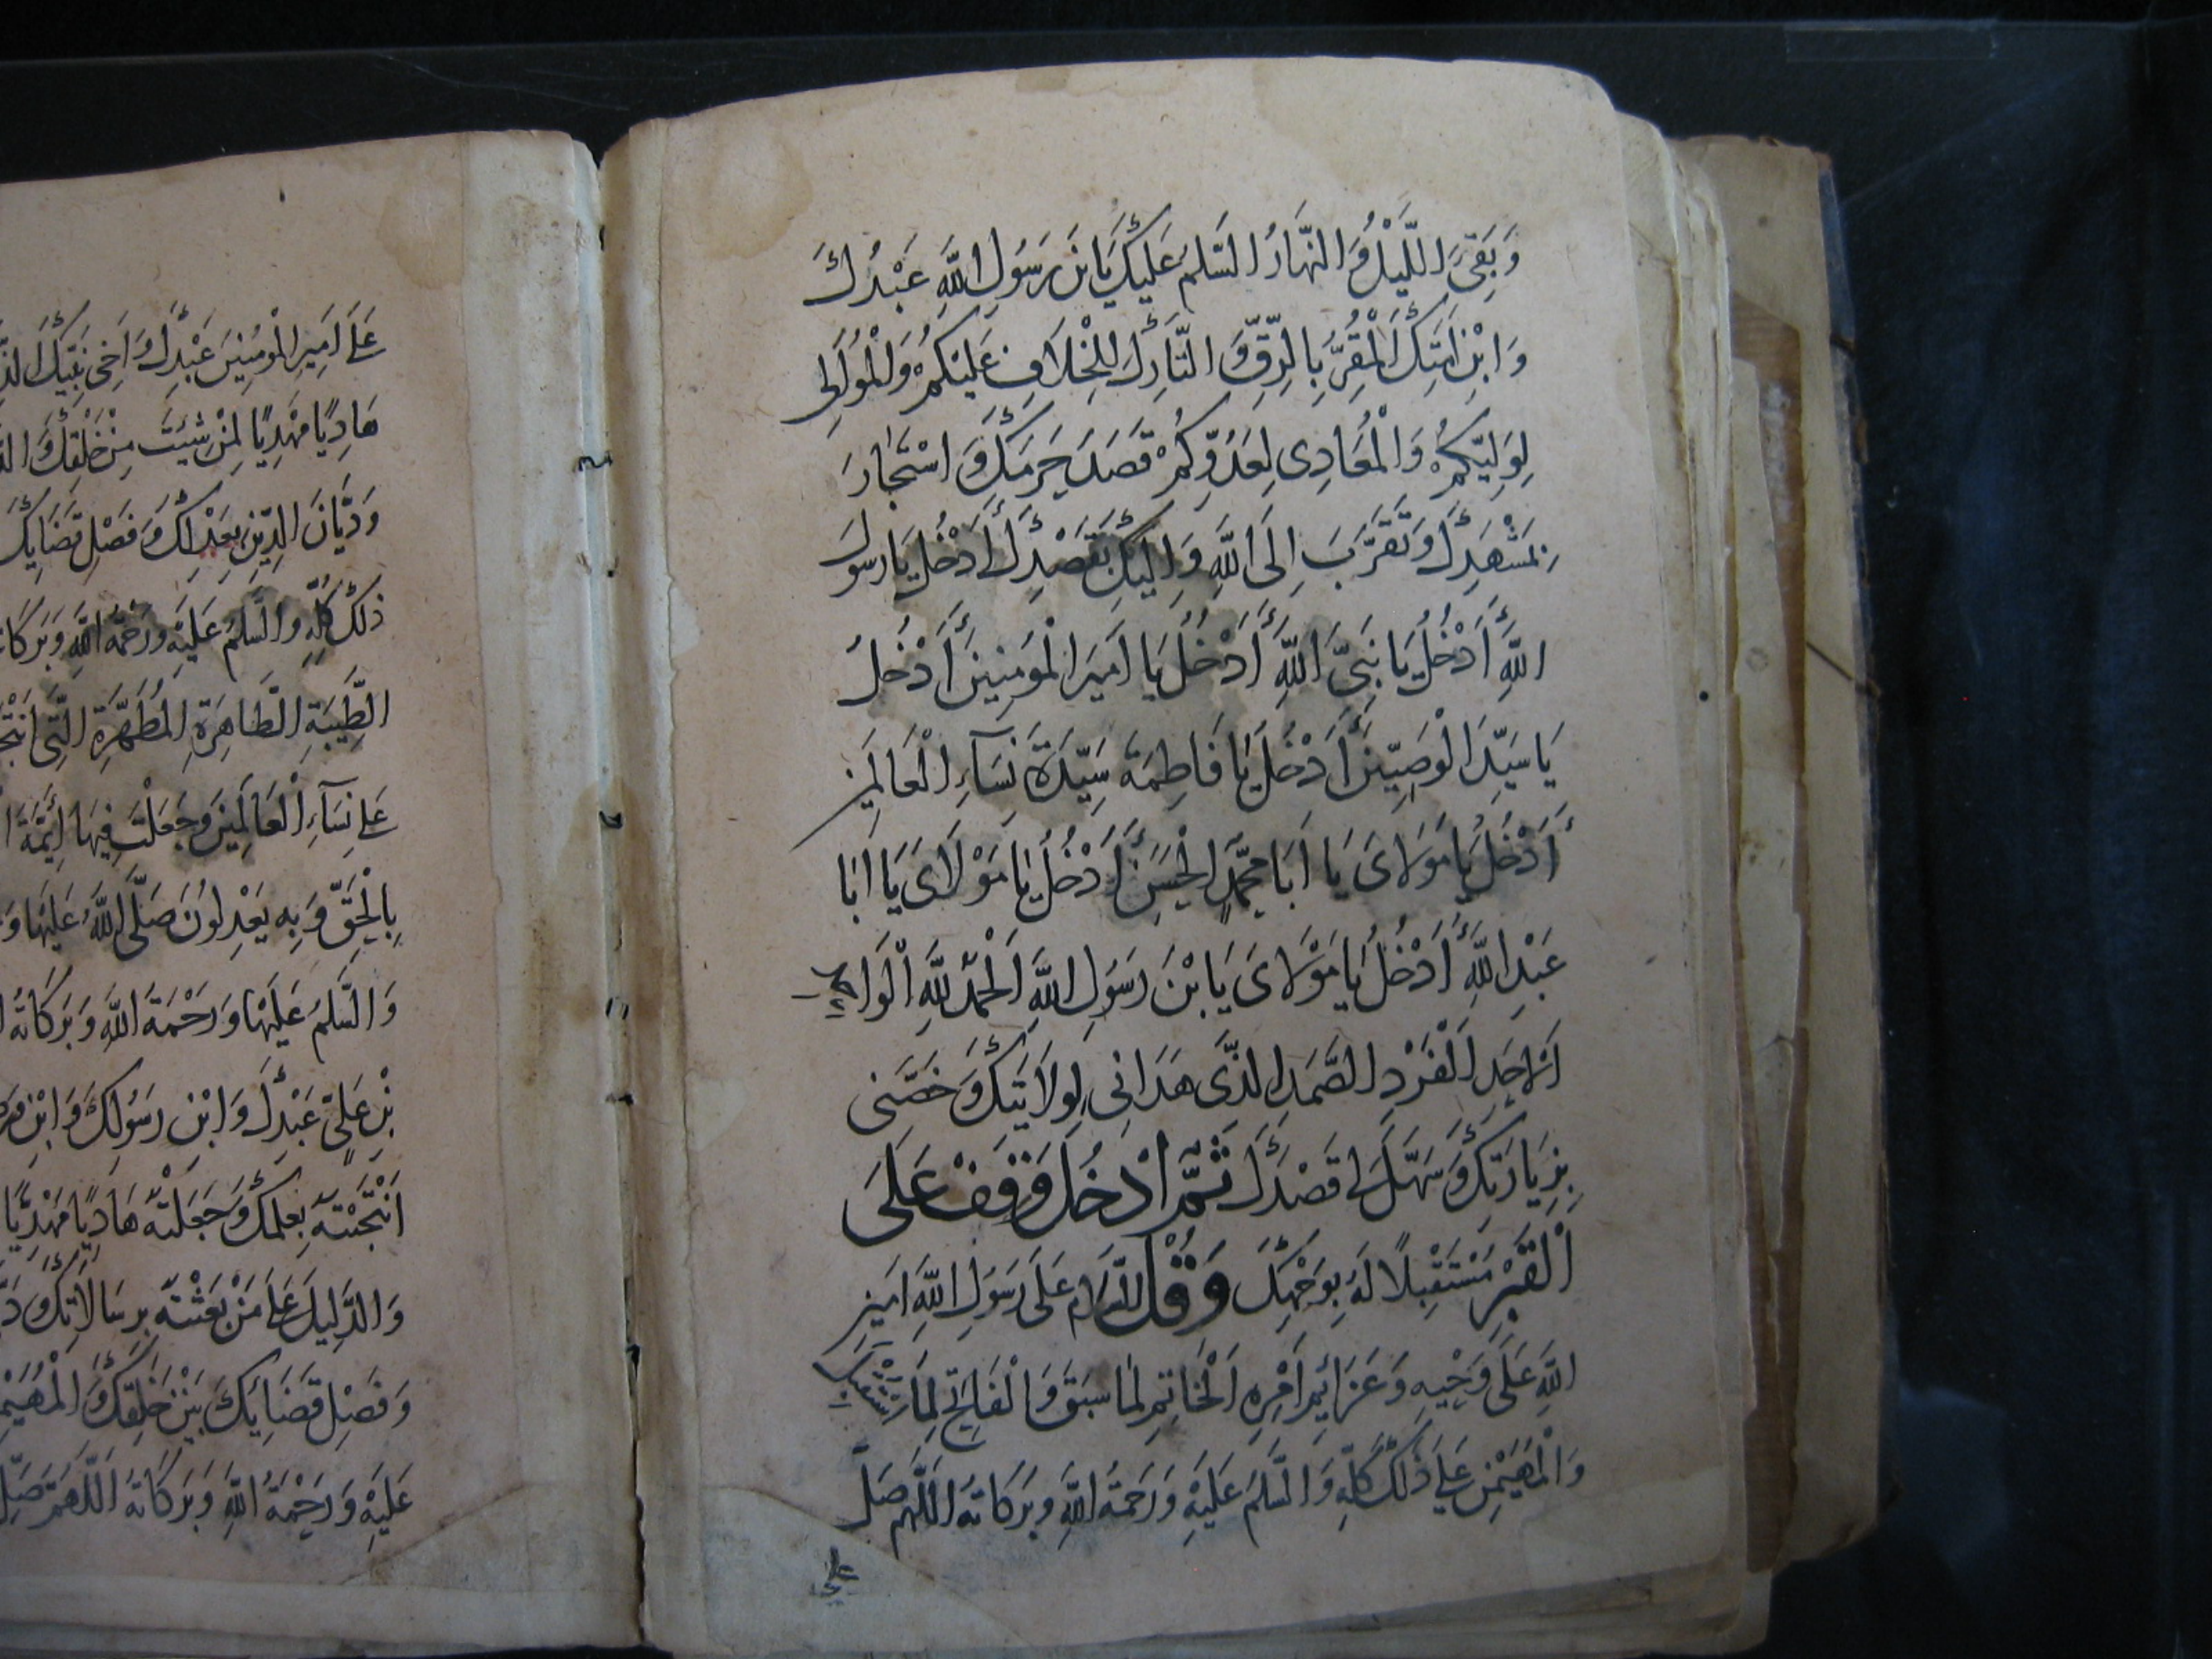 وَبَقِيَ اللَّيْلُ وَالنَّهَارُ السَّلمُ عَلَيْكَ يَا بْنَ رَسُولِ اللَّهِ عَبْدُكَ
وَابْنُ اَمَتِكَ الْمُقِرُّ بِالرِّقِّ وَالتَّارِكُ لِلْخِلَافِ عَلَيْكُمْ وَالْمُوَالِي
لِوَلِيِّكُمْ وَالْمُعَادِي لِعَدُوِّكُمْ قَصَدَ حَرَمَكَ وَاسْتَجَارَ
بِمَشْهَدِكَ وَتَقَرَّبَ اِلَى اللَّهِ وَاِلَيْكَ بِقَصْدِكَ أَاَدْخُلُ يَا رَسُولَ
اللَّهِ أَاَدْخُلُ يَا نَبِيَّ اللَّهِ أَاَدْخُلُ يَا اَمِيرَ الْمُؤْمِنِينَ أَاَدْخُلُ
يَا سَيِّدَ الْوَصِيِّينَ أَاَدْخُلُ يَا فَاطِمَةُ سَيِّدَةَ نِسَآءِ الْعَالَمِينَ
أَاَدْخُلُ يَا مَوْلَايَ يَا اَبَا مُحَمَّدٍ الْحَسَنِ أَاَدْخُلُ يَا مَوْلَايَ يَا اَبَا
عَبْدِ اللَّهِ أَاَدْخُلُ يَا مَوْلَايَ يَا بْنَ رَسُولِ اللَّهِ اَلْحَمْدُ لِلَّهِ الْوَاحِدِ
الْاَحَدِ الْفَرْدِ الصَّمَدِ الَّذِي هَدَانِي لِوِلَايَتِكَ وَخَصَّنِي
بِزِيَارَتِكَ وَسَهَّلَ لِي قَصْدَكَ ثُمَّ ادْخُلْ وَقِفْ عَلَى
الْقَبْرِ مُسْتَقْبِلًا لَهُ بِوَجْهِكَ وَقُلْ اَلسَّلَامُ عَلَى رَسُولِ اللَّهِ اَمِينِ
اللَّهِ عَلَى وَحْيِهِ وَعَزَائِمِ اَمْرِهِ اَلْخَاتِمِ لِمَا سَبَقَ وَالْفَاتِحِ لِمَا اسْتُقْبِلَ
وَالْمُهَيْمِنِ عَلَى ذَلِكَ كُلِّهِ وَالسَّلمُ عَلَيْهِ وَرَحْمَةُ اللَّهِ وَبَرَكَاتُهُ اَللَّهُمَّ صَلِّ
عَلَى اَمِيرِ الْمُؤْمِنِينَ عَبْدِكَ وَاَخِي نَبِيِّكَ
هَادِيًا مَهْدِيًّا لِمَنْ شِئْتَ مِنْ خَلْقِكَ
وَدَيَّانَ الدِّينِ بِعَدْلِكَ وَفَصْلِ قَضَايِكَ
ذَلِكَ كُلِّهِ وَالسَّلمُ عَلَيْهِ وَرَحْمَةُ اللَّهِ وَبَرَكَاتُهُ
الطَّيِّبَةِ الطَّاهِرَةِ الْمُطَهَّرَةِ الَّتِي
عَلَى نِسَآءِ الْعَالَمِينَ وَجَعَلْتَ فِيهَا اَئِمَّةَ
بِالْحَقِّ وَبِهِ يَعْدِلُونَ صَلَّى اللَّهُ عَلَيْهَا
وَالسَّلمُ عَلَيْهَا وَرَحْمَةُ اللَّهِ وَبَرَكَاتُهُ
بْنِ عَلِيٍّ عَبْدِكَ وَابْنِ رَسُولِكَ وَابْنِ
انْتَجَبْتَهُ بِعِلْمِكَ وَجَعَلْتَهُ هَادِيًا مَهْدِيًّا
وَالدَّلِيلَ عَلَى مَنْ بَعَثْتَهُ بِرِسَالَاتِكَ
وَفَصْلِ قَضَايِكَ بَيْنَ خَلْقِكَ وَالْمُهَيْمِنِ
عَلَيْهِ وَرَحْمَةُ اللَّهِ وَبَرَكَاتُهُ اَللَّهُمَّ صَلِّ